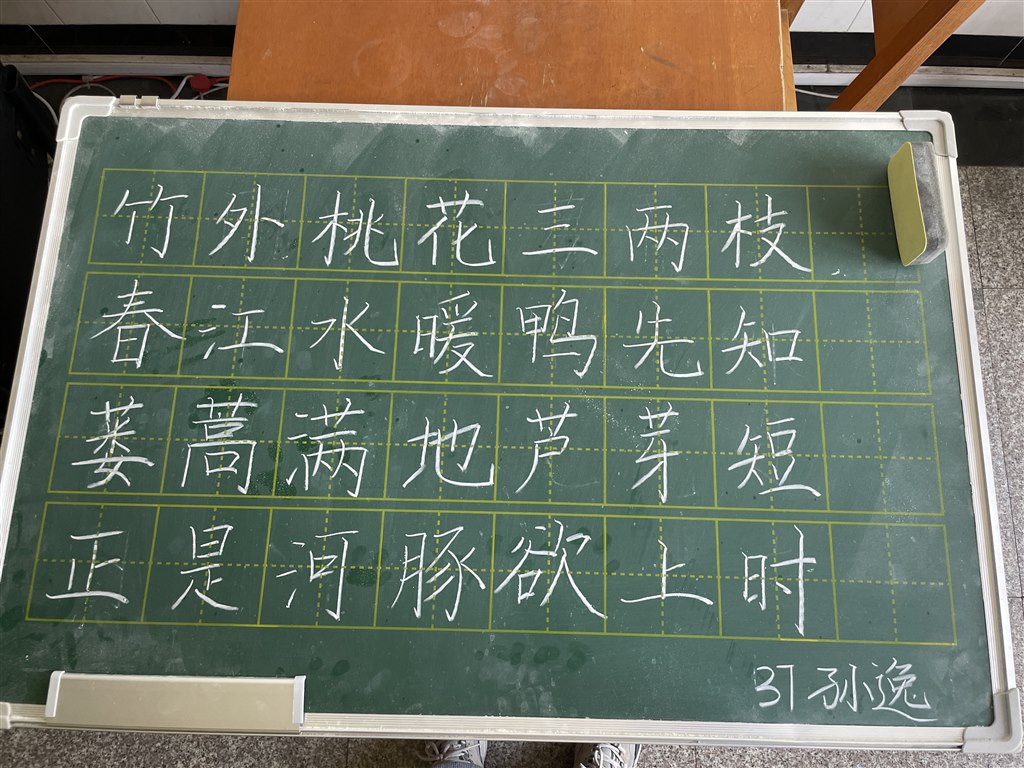 竹外桃花三两枝
春江水暖鸭先知
蒌蒿满地芦芽短
正是河豚欲上时
37 孙逸